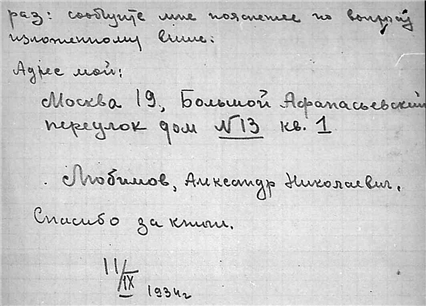 раз: сообщите мне пояснее по вопросу
изложенному выше.
Адрес мой:
Москва 19, Большой Афанасьевский
переулок дом №13 кв. 1
Любимов, Александр Николаевич.
Спасибо за
11/IX 1934г